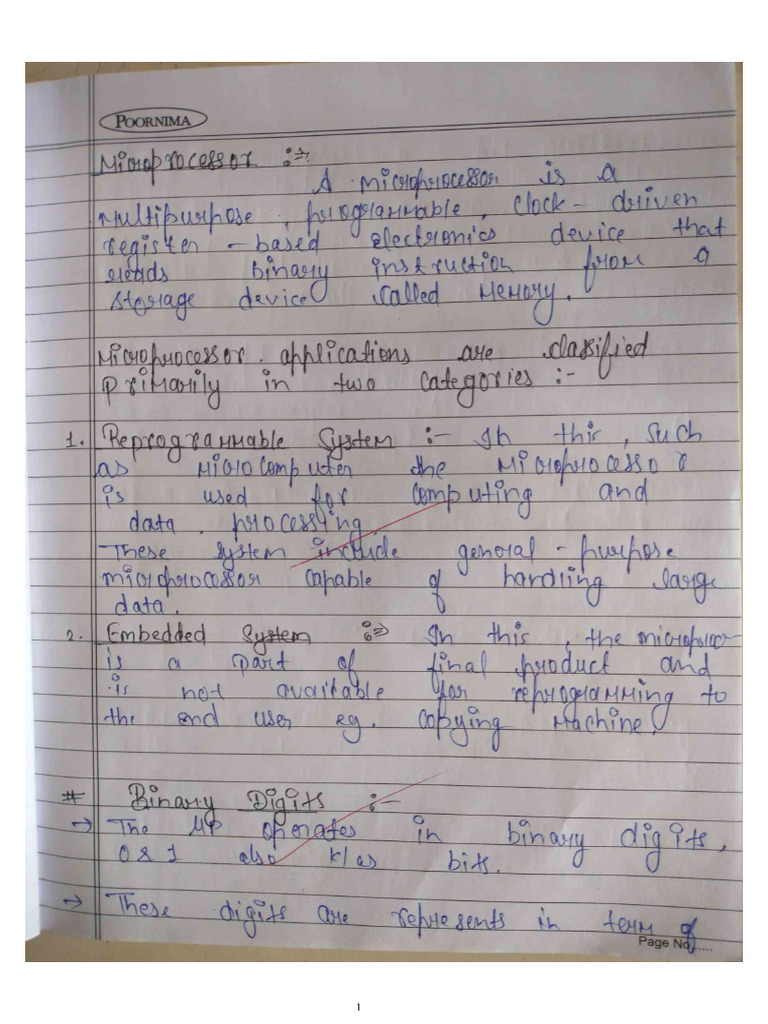 POORNIMA
Microprocessor :→
A microprocessor is a
Multipurpose, programmable, clock-driven
register-based electronics device that
reads binary instruction from a
storage device called memory.
Microprocessor applications are classified
primarily in two categories :-
1. Reprogrammable System :- In this, such
as microcomputer the microprocessor
is used for computing and
data processing.
These system include general-purpose
microprocessor capable of handling large
data.
2. Embedded System :⇒ In this, the
is a part of final product and
is not available for reprogramming to
the end user eg. copying machine.
# Binary Digits :-
→ The MP operates in binary digits,
0 & 1 also k/as bits.
→ These digits are represents in term of
Page No......
1